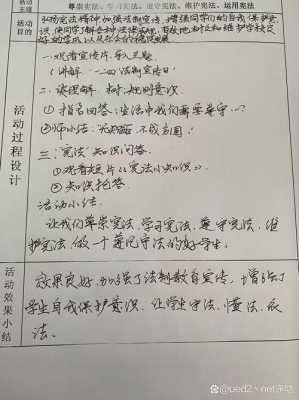 活动主题 尊崇宪法、学习宪法、遵守宪法、维护宪法、运用宪法
活动目的 弘扬宪法精神加强法制宣传，增强同学们的自我保护意识，使同学了解各种法律常识，有效地
一、观看宣传片，导入主题
（讲解 一二·四法制宣传日）
二、谈理解，树规则意识
① 指名回答：生活中我们需要遵守…？
② 师小结：无规矩，不成方圆！
三、"宪法"知识问答
① 观看短片《宪法小知识》
② 知识抢答
活动小结：
让我们尊崇宪法，学习宪法，遵守宪法，维
护宪法，做一个遵纪守法的好学生。
活动过程设计
活动效果小结
效果良好，加强了法制教育宣传，增强了
学生自我保护意识，让学生守法，懂法，
法。
@ued2、net活动